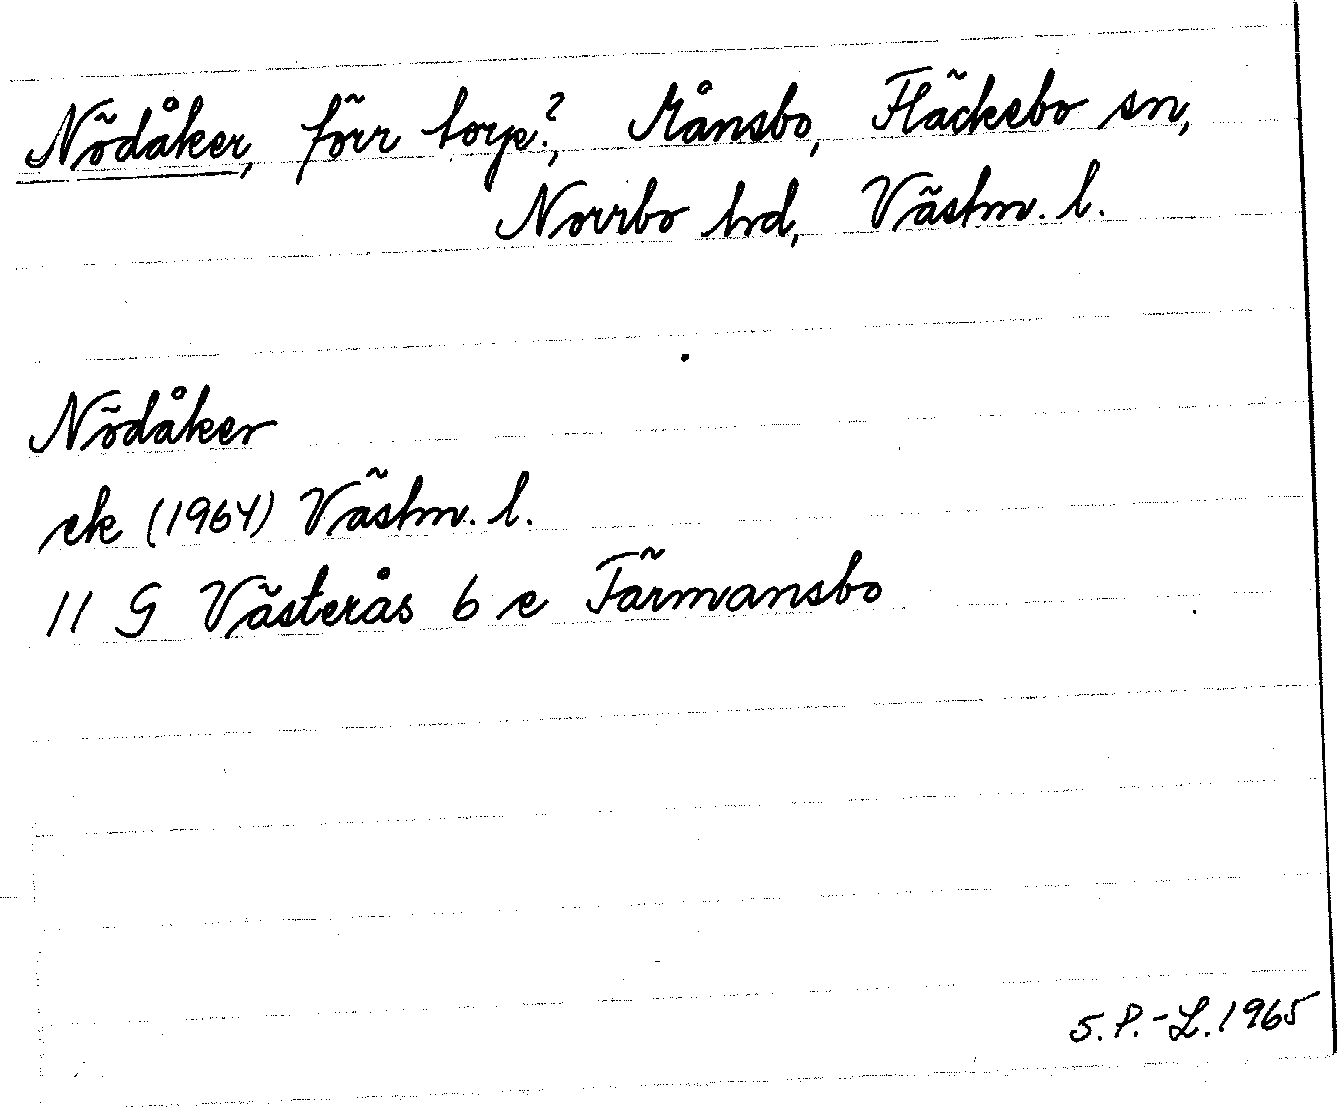 Nödåker, förr torp?, Månsbo, Fläckebo sn,
Norrbo hd, Västm. l.
Nödåker
ek (1964) Västm. l.
11 G Västerås 6 e Färmansbo
S.P.-L. 1965